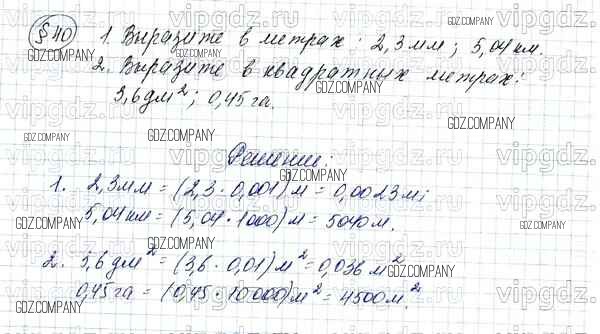 § 40
1. Выразите в метрах: 2,3 мм; 5,04 км.
2. Выразите в квадратных метрах:
3,6 дм²; 0,45 га.
Решение:
1. 2,3 мм = (2,3 · 0,001) м = 0,0023 м;
5,04 км = (5,04 · 1000) м = 5040 м.
2. 3,6 дм² = (3,6 · 0,01) м² = 0,036 м²
0,45 га = (0,45 · 10000) м² = 4500 м².
vipgdz.ru
GDZ.COMPANY